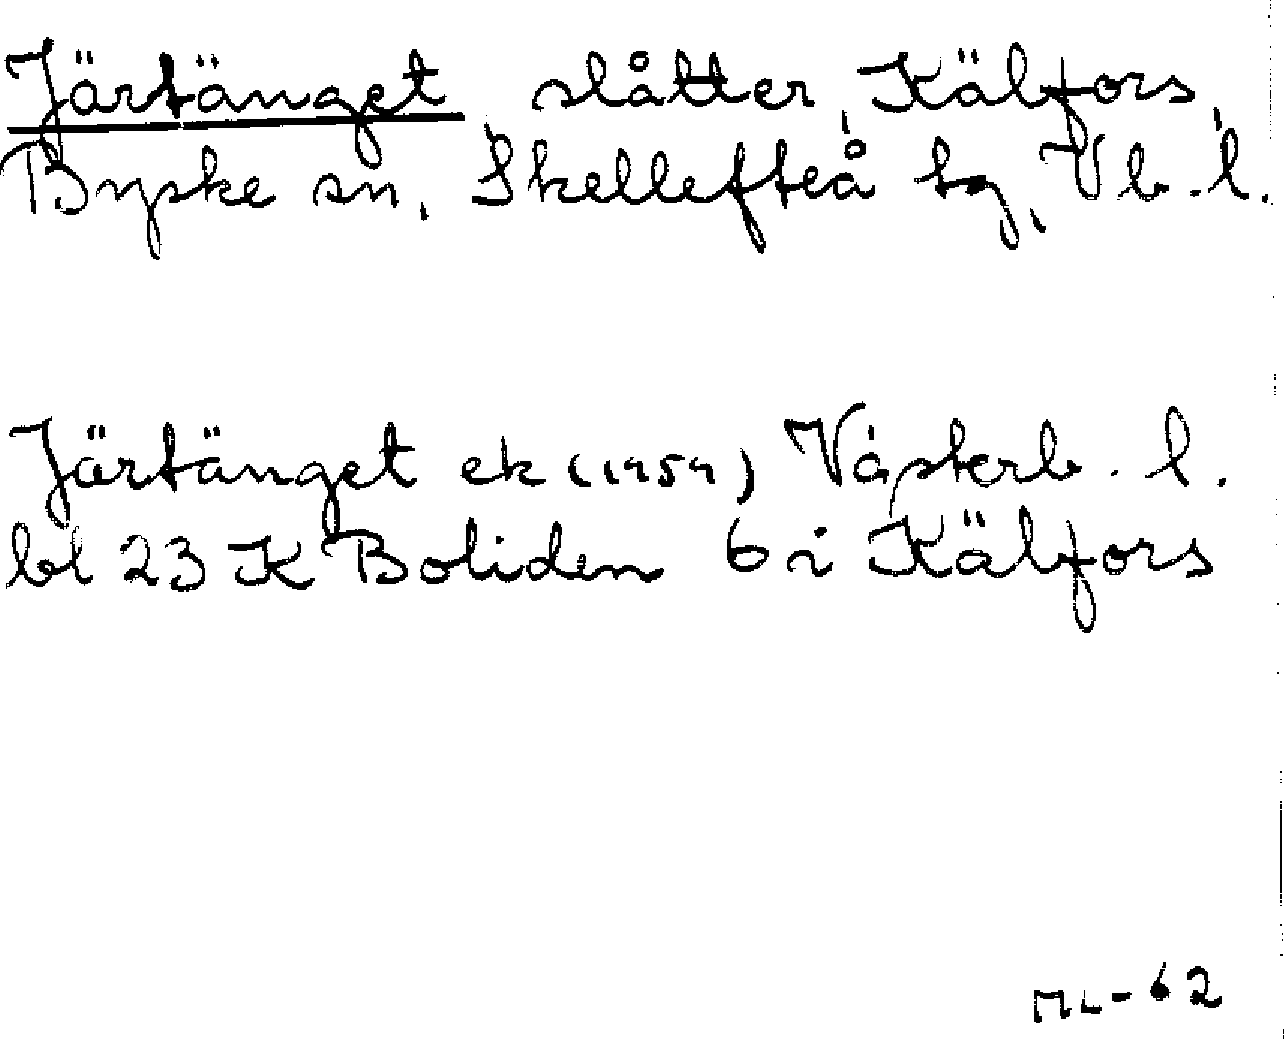 Järtänget slåtter, Kälfors,
Byske sn, Skellefteå tg, Vb. l.
Järtänget ek (1959) Västerb. l.
bl 23 K Boliden 6 i Kälfors
ML-62